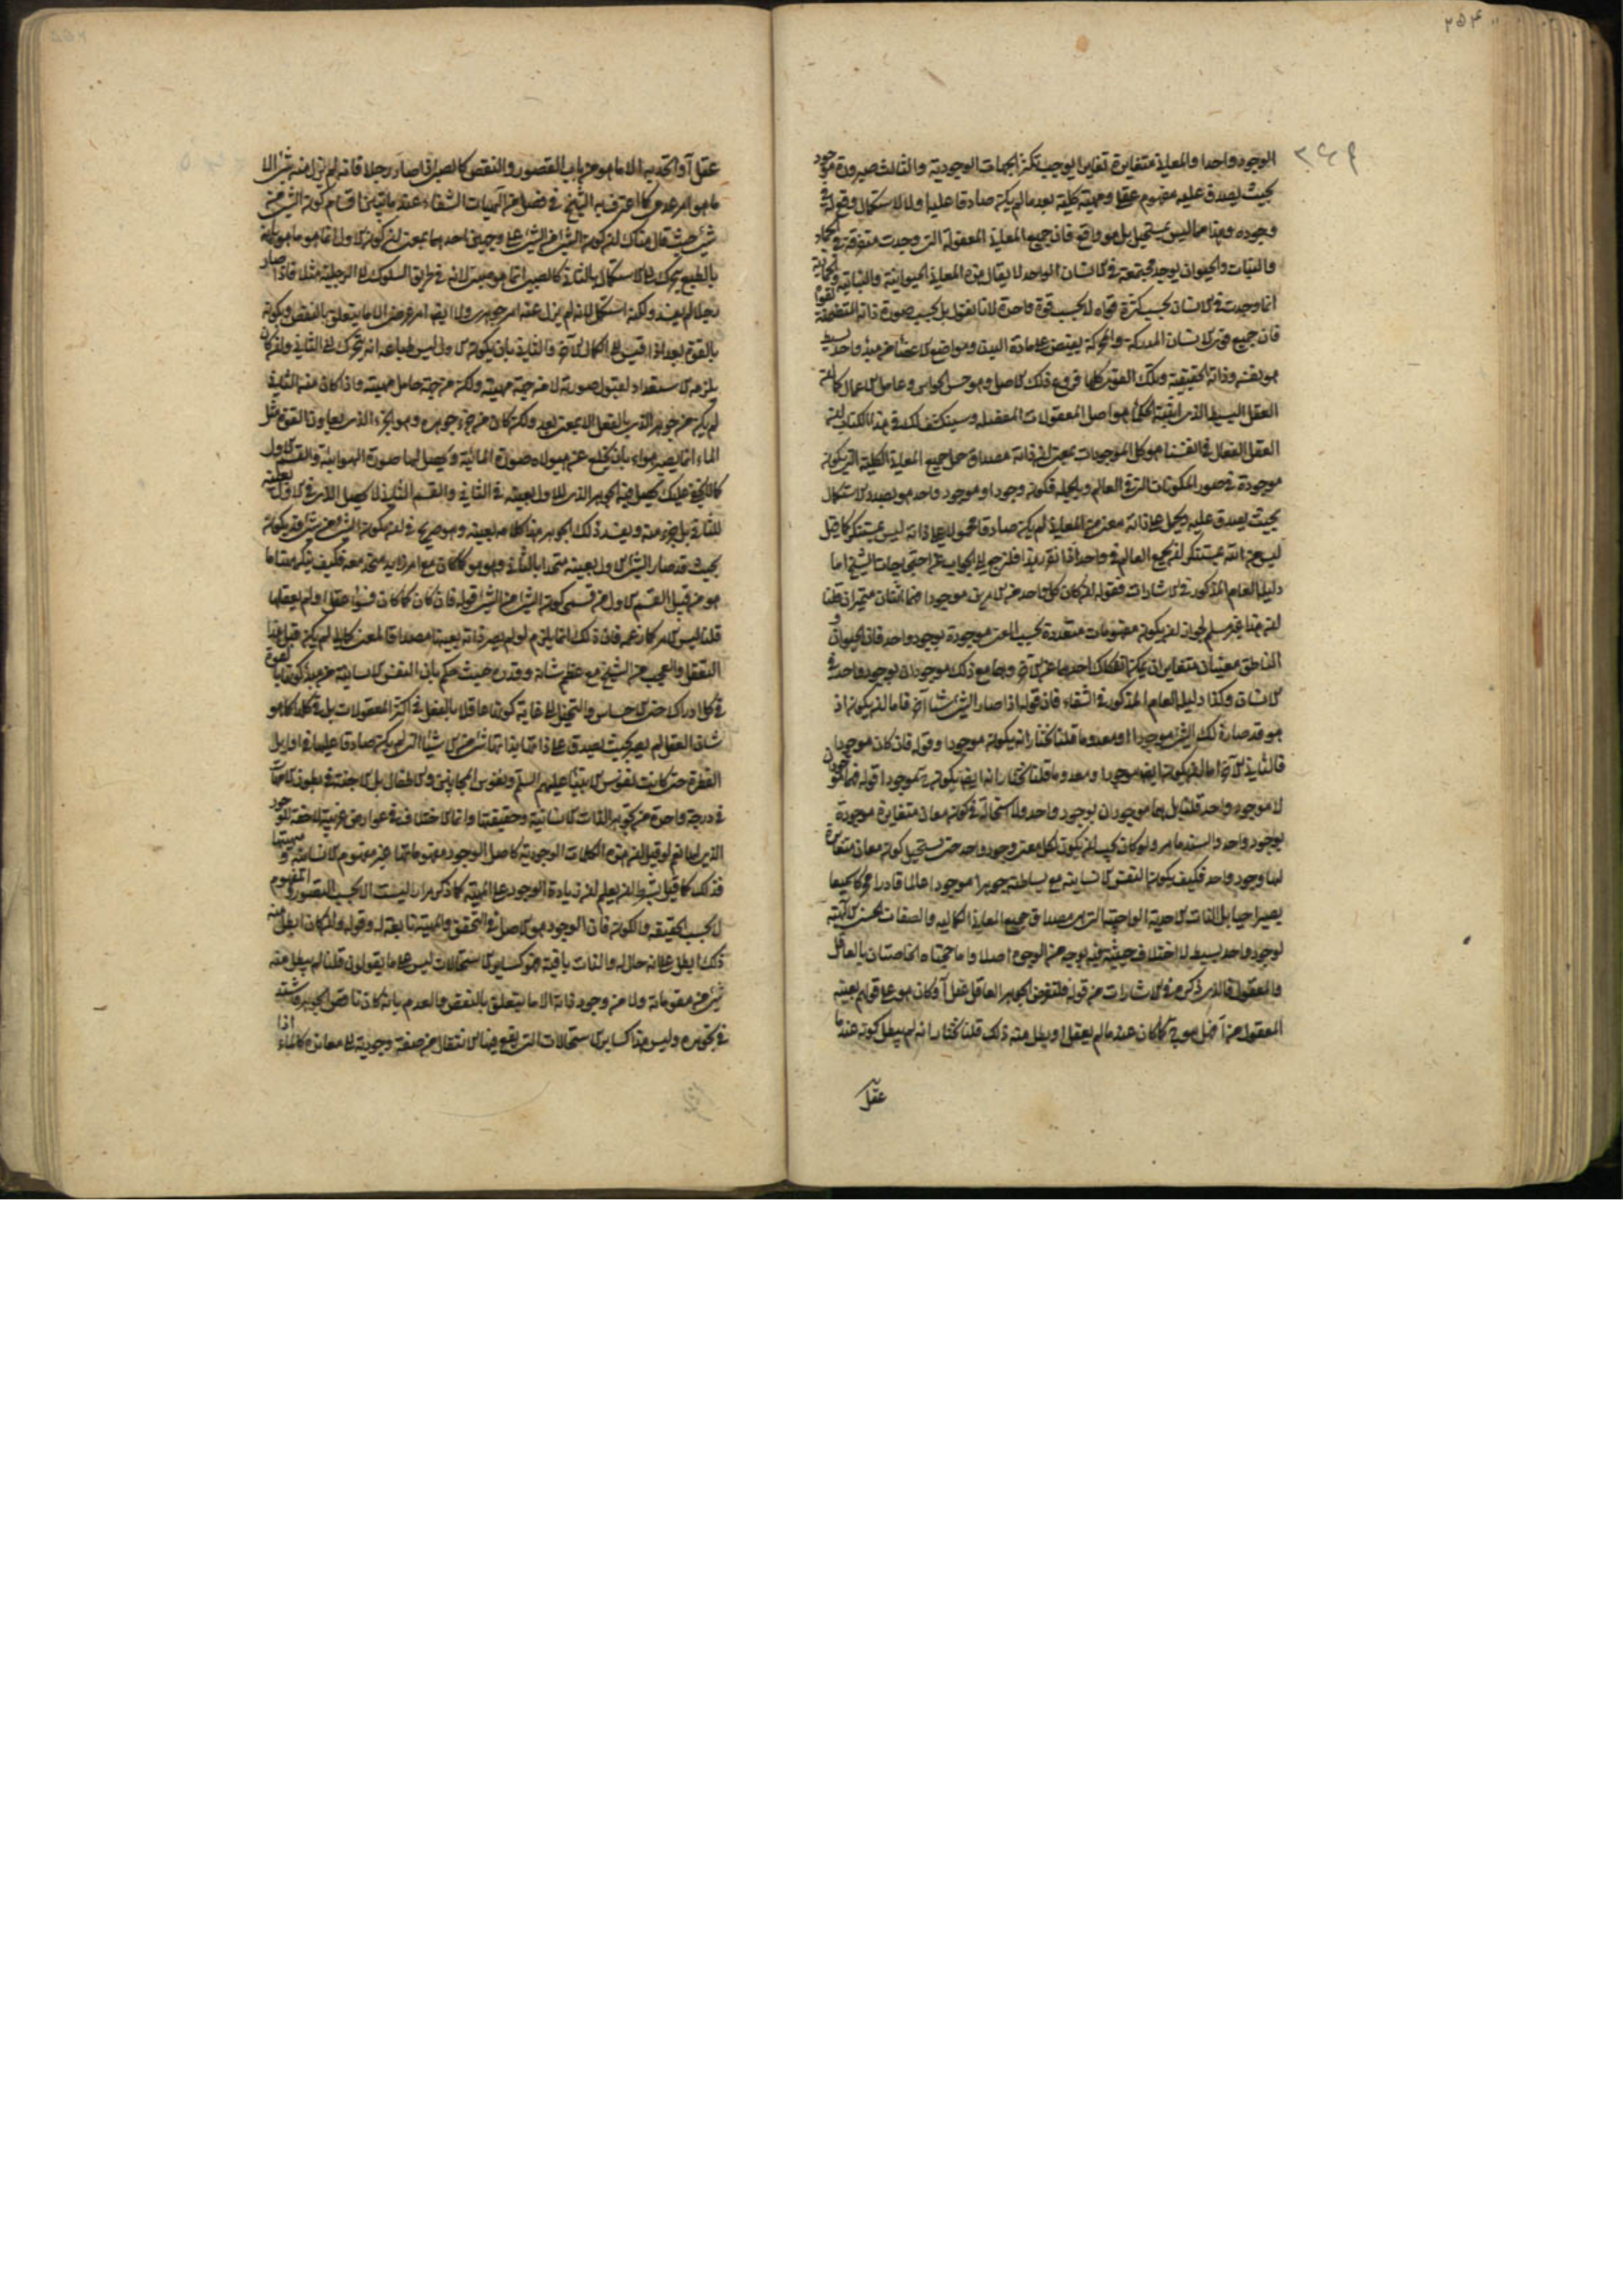 ٢٥٤
٢٤٩
الوجود واحدا والمعاني متغايرة تغايرا يوجب تكثر الجهات الوجودية والثالث صيرورة موجود
بحيث يصدق عليه مفهوم عقلي وماهية كلية بعد ما لم يكن صادقا عليه اولا لاستكمال وقع له في
وجوده وهذا مما ليس بمستحيل بل هو واقع فان جميع المعاني المعقولة التي وجدت متفرقة في الجماد
والنبات والحيوان يوجد مجتمعة في الانسان الواحد لا يقال هذه المعاني الحيوانية والنباتية والجمادية
انما وجدت في الانسان بحسب كثرة قواه لا بحسب قوة واحدة لانا نقول بل بحسب صورة ذاته المتضمنة لقواه
فان جميع قوى الانسان المدركة والمحركة يفيض على مادة البدن ومواضع الاعضاء عن مبدء واحد بسيط
هو نفسه وذاته الحقيقية وتلك القوى كلها فروع ذلك الاصل وهو حس الحواس وعامل الاعمال كما ان
العقل البسيط الذي اثبته الحكماء هو اصل المعقولات المفصلة وسينكشف لك في هذا الكتاب ان
العقل الفعال في انفسنا هو كل الموجودات بمعنى ان ذاته مصداق حمل جميع المعاني الكلية التي يكون
موجودة في صور المكونات التي في العالم وبالجملة فكون وجود او موجود واحد هو بصدد الاستكمال
بحيث يصدق عليه ويحمل على ذاته معنى من المعاني لم يكن صادقا محمولا على ذاته ليس بمستنكر كما قيل
ليس من الله بمستنكر ان يجمع العالم في واحد اذا تقرر هذا فلنرجع الى الجواب عن احتجاجات الشيخ اما
دليله العام المذكور في الاشارات فقوله ان كان كل واحد من الامرين موجودا فهما اثنان متميزان قلنا
ان هذا غير مسلم لجواز ان يكون مفهومات متعددة بحسب المعنى موجودة بوجود واحد فان الحيوان و
الناطق معنيان متغايران يمكن انفكاك احدهما عن الاخر وهما مع ذلك موجودان بوجود واحد في
الانسان وكذا دليله العام المذكور في الشفاء فان قوله اذا صار الشيء شيئا آخر فاما ان يكون اذ
هو قد صار ذلك الشيء موجودا او معدوما قلنا نختار انه يكون موجودا وقوله فان كان موجودا
فالثاني الاخر اما ان يكون ايضا موجودا او معدوما قلنا نختار انه ايضا يكون موجودا قوله فهما موجودان
لا موجود واحد قلنا بل هما موجودان بوجود واحد ولا استحالة في كون معان متغايرة موجودة
بوجود واحد والسند ما مر ولو كان يجب ان يكون لكل معنى وجود واحد حتى يستحيل كون معان متغايرة
لها وجود واحد فكيف يكون النفس الانسانية مع بساطته جوهرا موجودا عالما قادرا محركا سميعا
بصيرا حيا بل الذات الاحدية الواجبية التي هي مصداق جميع المعاني الكمالية والصفات الحسنى الالهية
لوجود واحد بسيط لا اختلاف حيثية فيه بوجه من الوجوه اصلا واما حجتاه الخاصتان بالعاقل
والمعقول فالذي ذكره في الاشارات من قوله فلنفرض الجوهر العاقل عقل آ وكان هو على قولهم بعينه
المعقول من آ فهل هو ح كما كان عند ما لم يعقل او بطل منه ذلك قلنا نختار انه لم يبطل كونه عند ما
عقل
عقل آ واتحد به الا ما هو من باب القصور والنقص كالصبي اذا صار رجلا فانه لم يزل منه شيء الا
ما هو امر عدمي كما اعترف به الشيخ في فصل من الهيات الشفاء عند ما يتبين اقسام كون الشيء من
شيء حيث قال هناك ان كون الشيء من الشيء على وجهين احدهما بمعنى ان يكون الاول انما هو ما هو بانه
بالطبع يتحرك الى الاستكمال بالثاني كالصبي انما هو صبي لانه في طريق السلوك الى الرجلية مثلا فاذا صار
رجلا لم يفسد ولكنه استكمل لانه لم يزل عنه امر جوهري ولا ايضا امر عرضي الا ما يتعلق بالنقص وبكونه
بالقوة بعد اذا قيس الى الكمال الاخر والثاني بان يكون الاول ليس طباعه انه يتحرك الى الثاني وان كان
يلزمه الاستعداد لقبول صورته لا من جهة مهيته ولكن من جهة حامل مهيته واذا كان منه الثاني
لم يكن من جوهره الذي بالفعل الا بمعنى بعد ولكن كان من جزء جوهره وهو الجزء الذي يقارن القوة مثل
الماء انما يصير هواء بان يخلع عن هيولاه صورة المائية ويحصل لها صورة الهوائية والقسم الاول
كما لا يخفى عليك يحصل فيه الجوهر الذي للاول بعينه في الثاني والقسم الثاني لا يحصل الذي في الاول بعينه
للثاني بل جزء منه ويفسد ذلك الجوهر هذا كلامه بعينه وهو صريح في ان كون الشيء من شيء قد يكون
بحيث قد صار الشيء الاول بعينه متحدا بالثاني وهو هو كما كان مع امر زايد متحد معه فكيف ينكر هاهنا ما
هو من قبيل القسم الاول من قسمي كون الشيء من الشيء قوله فان كان كما كان فسواء عقل آ ولم يعقلها
قلنا ليس الامر كما زعمه فان ذلك انما يلزم لو لم يصر ذاته بعينها مصداقا لمعنى كمالي لم يكن قبل هذا
التعقل والعجب من الشيخ مع عظم شانه وقدره حيث حكم بان النفس الانسانية من مبدء كونها بالقوة
في كل ادراك حتى الاحساس والتخيل الى غاية كونها عاقلا بالفعل في اكثر المعقولات بل في كلها كما هو
شان العقل لم يصر بحيث يصدق على ذاتها بذاتها شيء من الاشياء التي لم يكن صادقا عليها في اوايل
الفطرة حتى كانت نفوس الانبياء عليهم السلم ونفوس المجانين والاطفال بل الاجنة في بطون الامهات
في درجة واحدة من تجوهر الذات الانسانية وحقيقتها وانما الاختلاف في عوارض غريبة لاحقة للوجود
الذي لها نعم لو قيل ان هذه الكمالات الوجودية كاصل الوجود مفهوماتها غير مفهوم الانسانية و مهيتها
فذلك كما قيل بشرط ان يعلم ان زيادة الوجود على المهية كما ذكر مرارا ليست الا بحسب التصور والمفهوم
لا بحسب الحقيقة والكون فان الوجود هو الاصل في التحقق والمهية تابعة له وقوله وان كان ابطل منه
ذلك ابطل على انه حال له والذات باقية فهو كساير الاستحالات ليس على ما يقولون قلنا لم يبطل منه
شيء من مقوماته ولا من وجود ذاته الا ما يتعلق بالنقص والعدم بانه كان ناقص الجوهر فاشتد
في تجوهره وليس هذا كساير الاستحالات التي يقع فيها الانتقال من صفة وجودية الى معاندها كالماء اذا